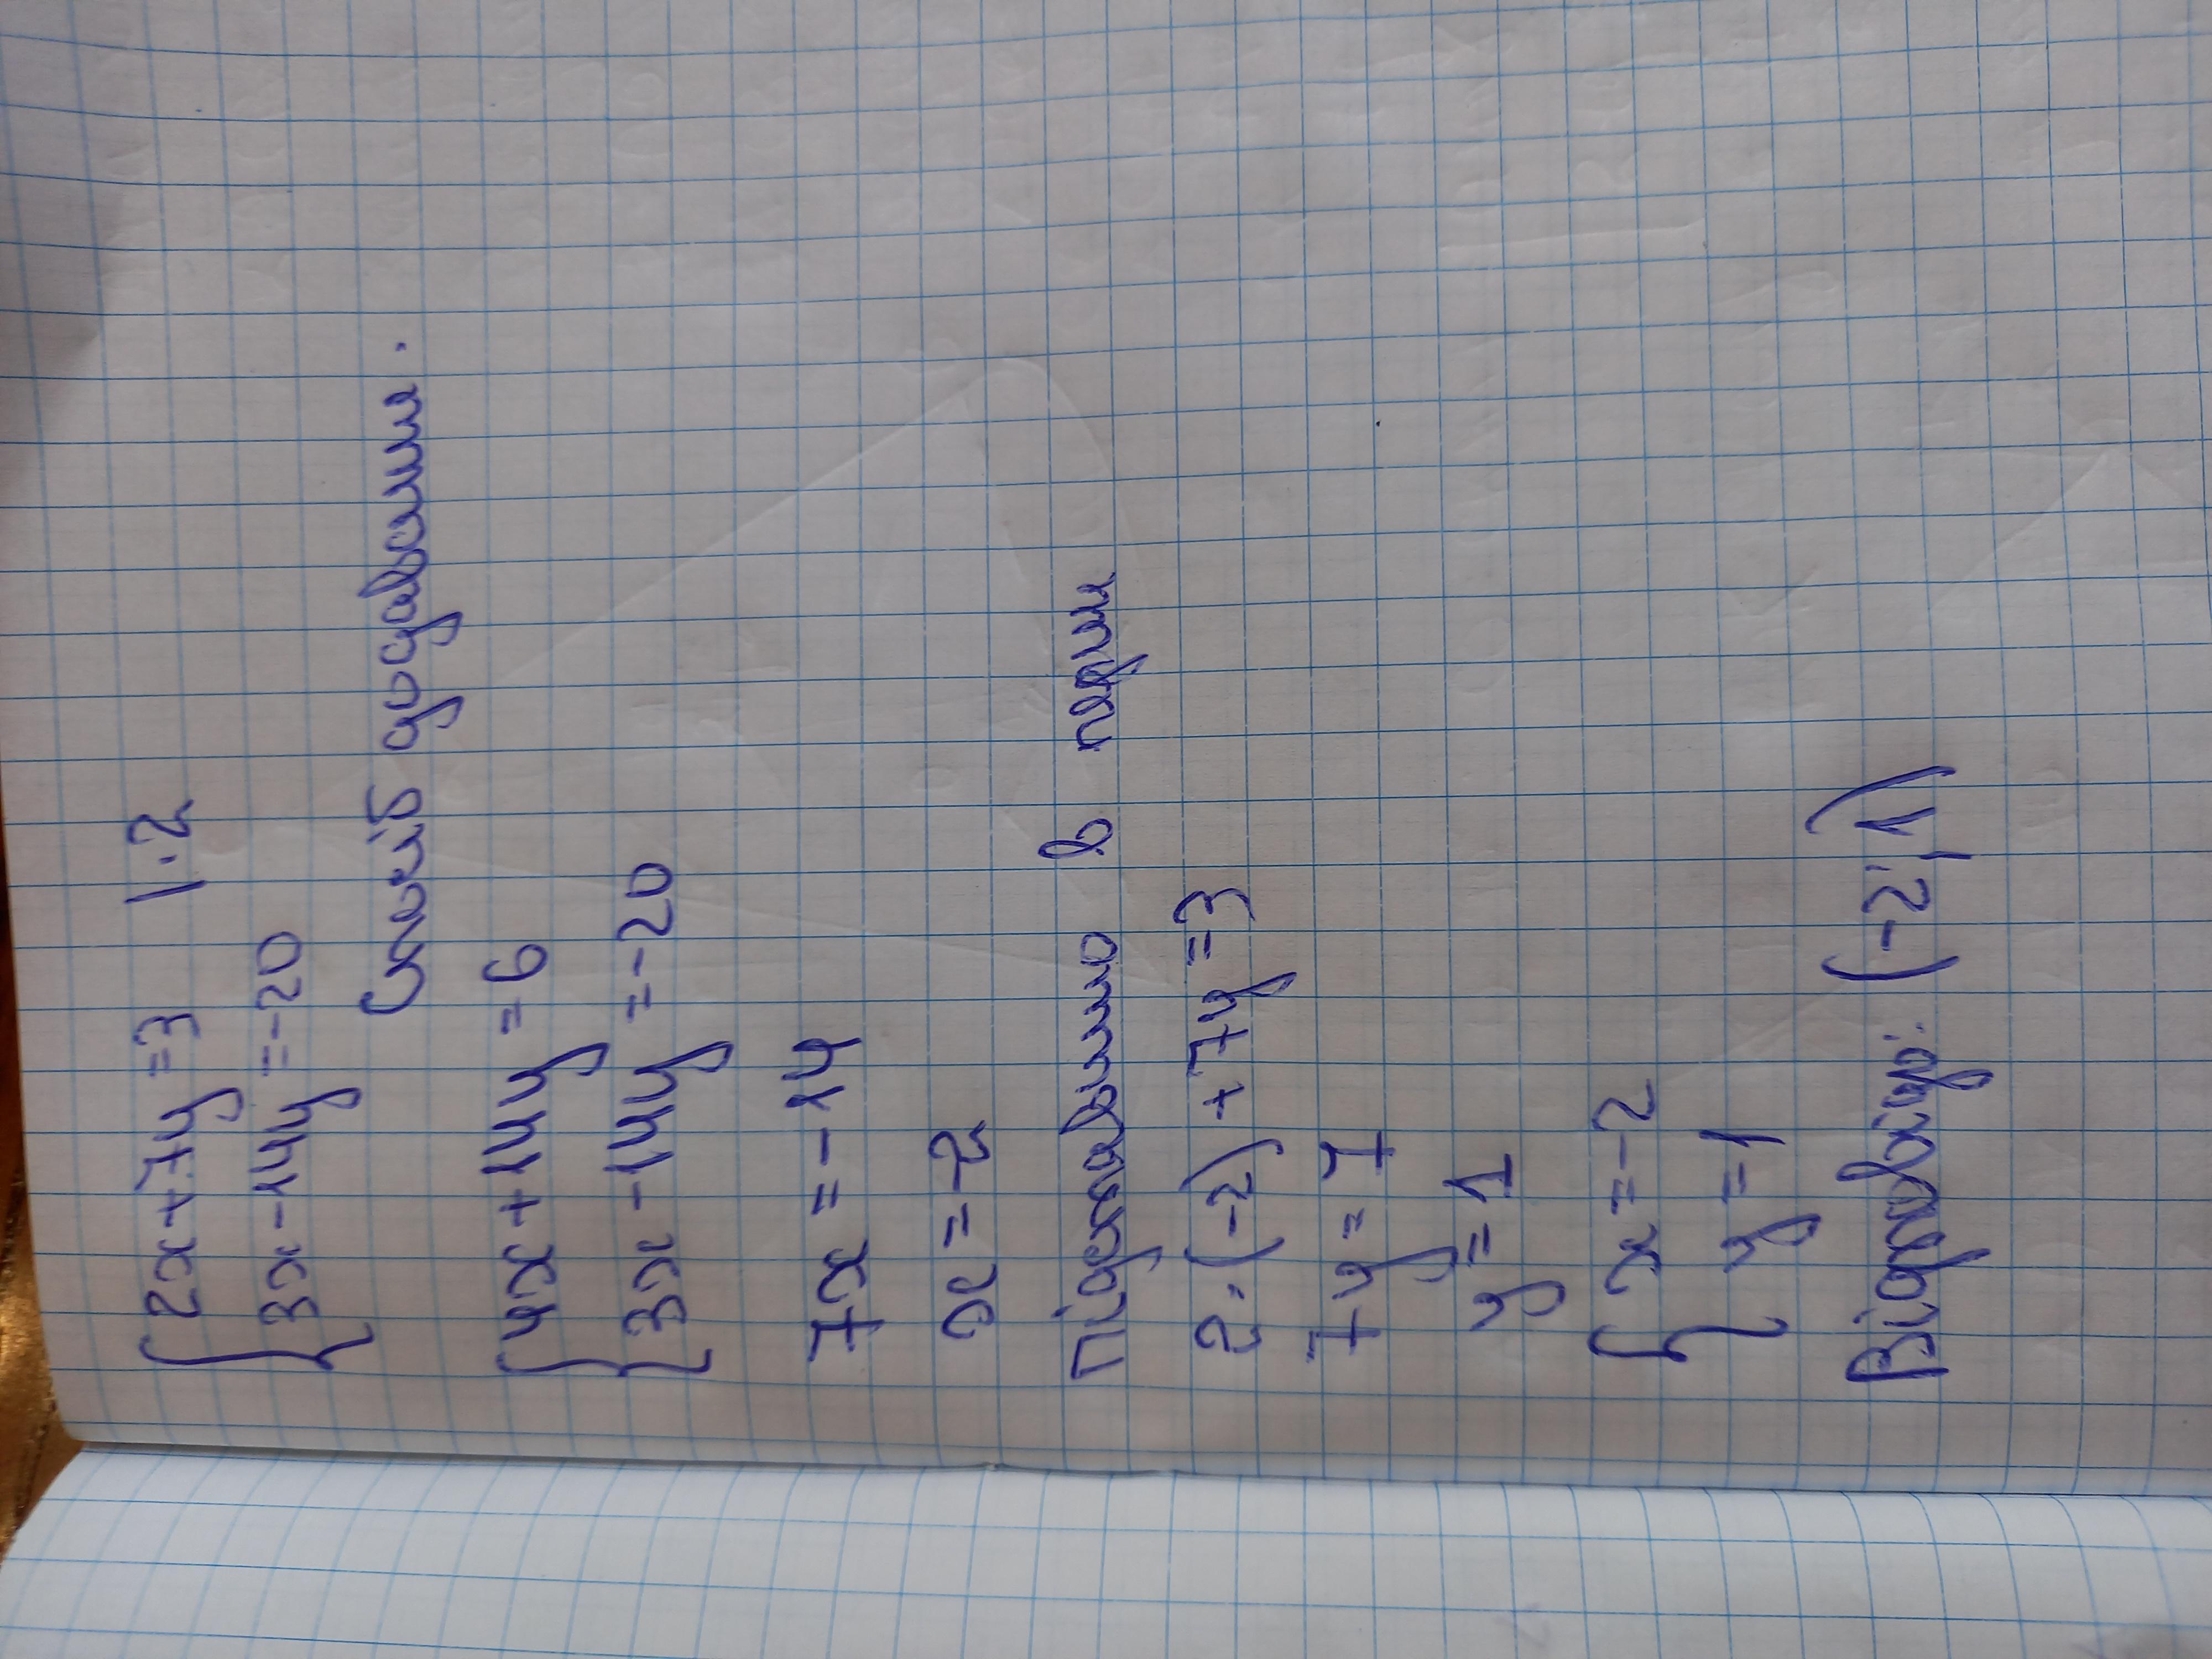 {2x+7y=3 |·2
3x-14y=-20
Спосіб додавання.
{4x+14y=6
3x-14y=-20
7x=-14
x=-2
Підставимо в перше
2·(-2)+7y=3
7y=7
y=1
{x=-2
y=1
Відповідь: (-2;1)